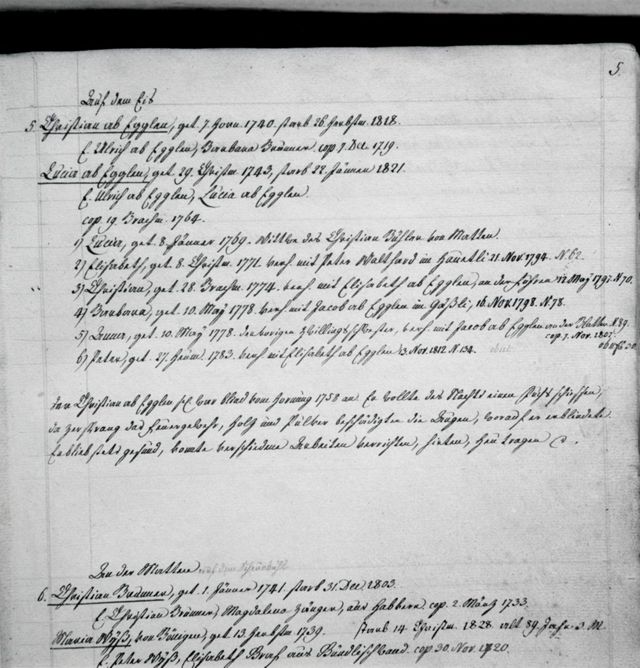 5.
Auf dem Eis
5. Christian ab Egglen, get. 7. Horn. 1740. starb 26 Herbstm. 1818.
E. Ulrich ab Egglen, Barbara Brunner cop. 7. Oct. 1719.
Lucia ab Egglen, get. 29. Christm. 1743, starb 22. Jänner 1821.
E. Ulrich ab Egglen, Lucia ab Egglen
cop. 19. Brachm. 1764.
1) Lucia, get. 8. Jänner 1769. Wittwe des Christian Bühler von Matten.
2) Elisabeth, get. 8. Christm. 1771. verh. mit Peter Walthard im 21. Nov. 1794. N. 62.
3) Christian, get. 28. Brachm. 1774. verh. mit Elisabeth ab Egglen, an der Föhren May 1797. N. 70.
4) Barbara, get. 10. May 1778. verh. mit Jacob ab Egglen im Gäßli, 16. Nov. 1798. N. 78.
5) Anna, get. 10. May 1778. der vorigen Zwillingsschwester, verh. mit Jacob ab Egglen an der Matten N. 89.
cop. 7. Nov. 1801.
6) Peter, get. 27. Heum. 1783. verh. mit Elisabeth ab Egglen 3. Nov. 1812 N. 134.
der Christian ab Egglen sel. war blind vom Hornung 1758 an. Er wollte des Nachts einen Fuchs schiessen,
da zersprang das Feuergewehr, Holz und Pulver beschädigten die Augen, worauf er erblindete
Er blieb stets gesund, konnte verschiedene Arbeiten verrichten, hirten, Heu tragen
An der Matten
6. Christian Brunner, get. 1. Jänner 1741. starb 31. Dec. 1803.
E. Christian Brunner, Magdalena Zünger, aus Habkern cop. 2. März 1733.
Maria Wyß, von Bönigen, get. 13. Herbstm. 1739. starb 14. Christm. 1828. alt 89. Jahr 3. M.
E. Peter Wyß, Elisabeth cop. 30. Nov. 1720.